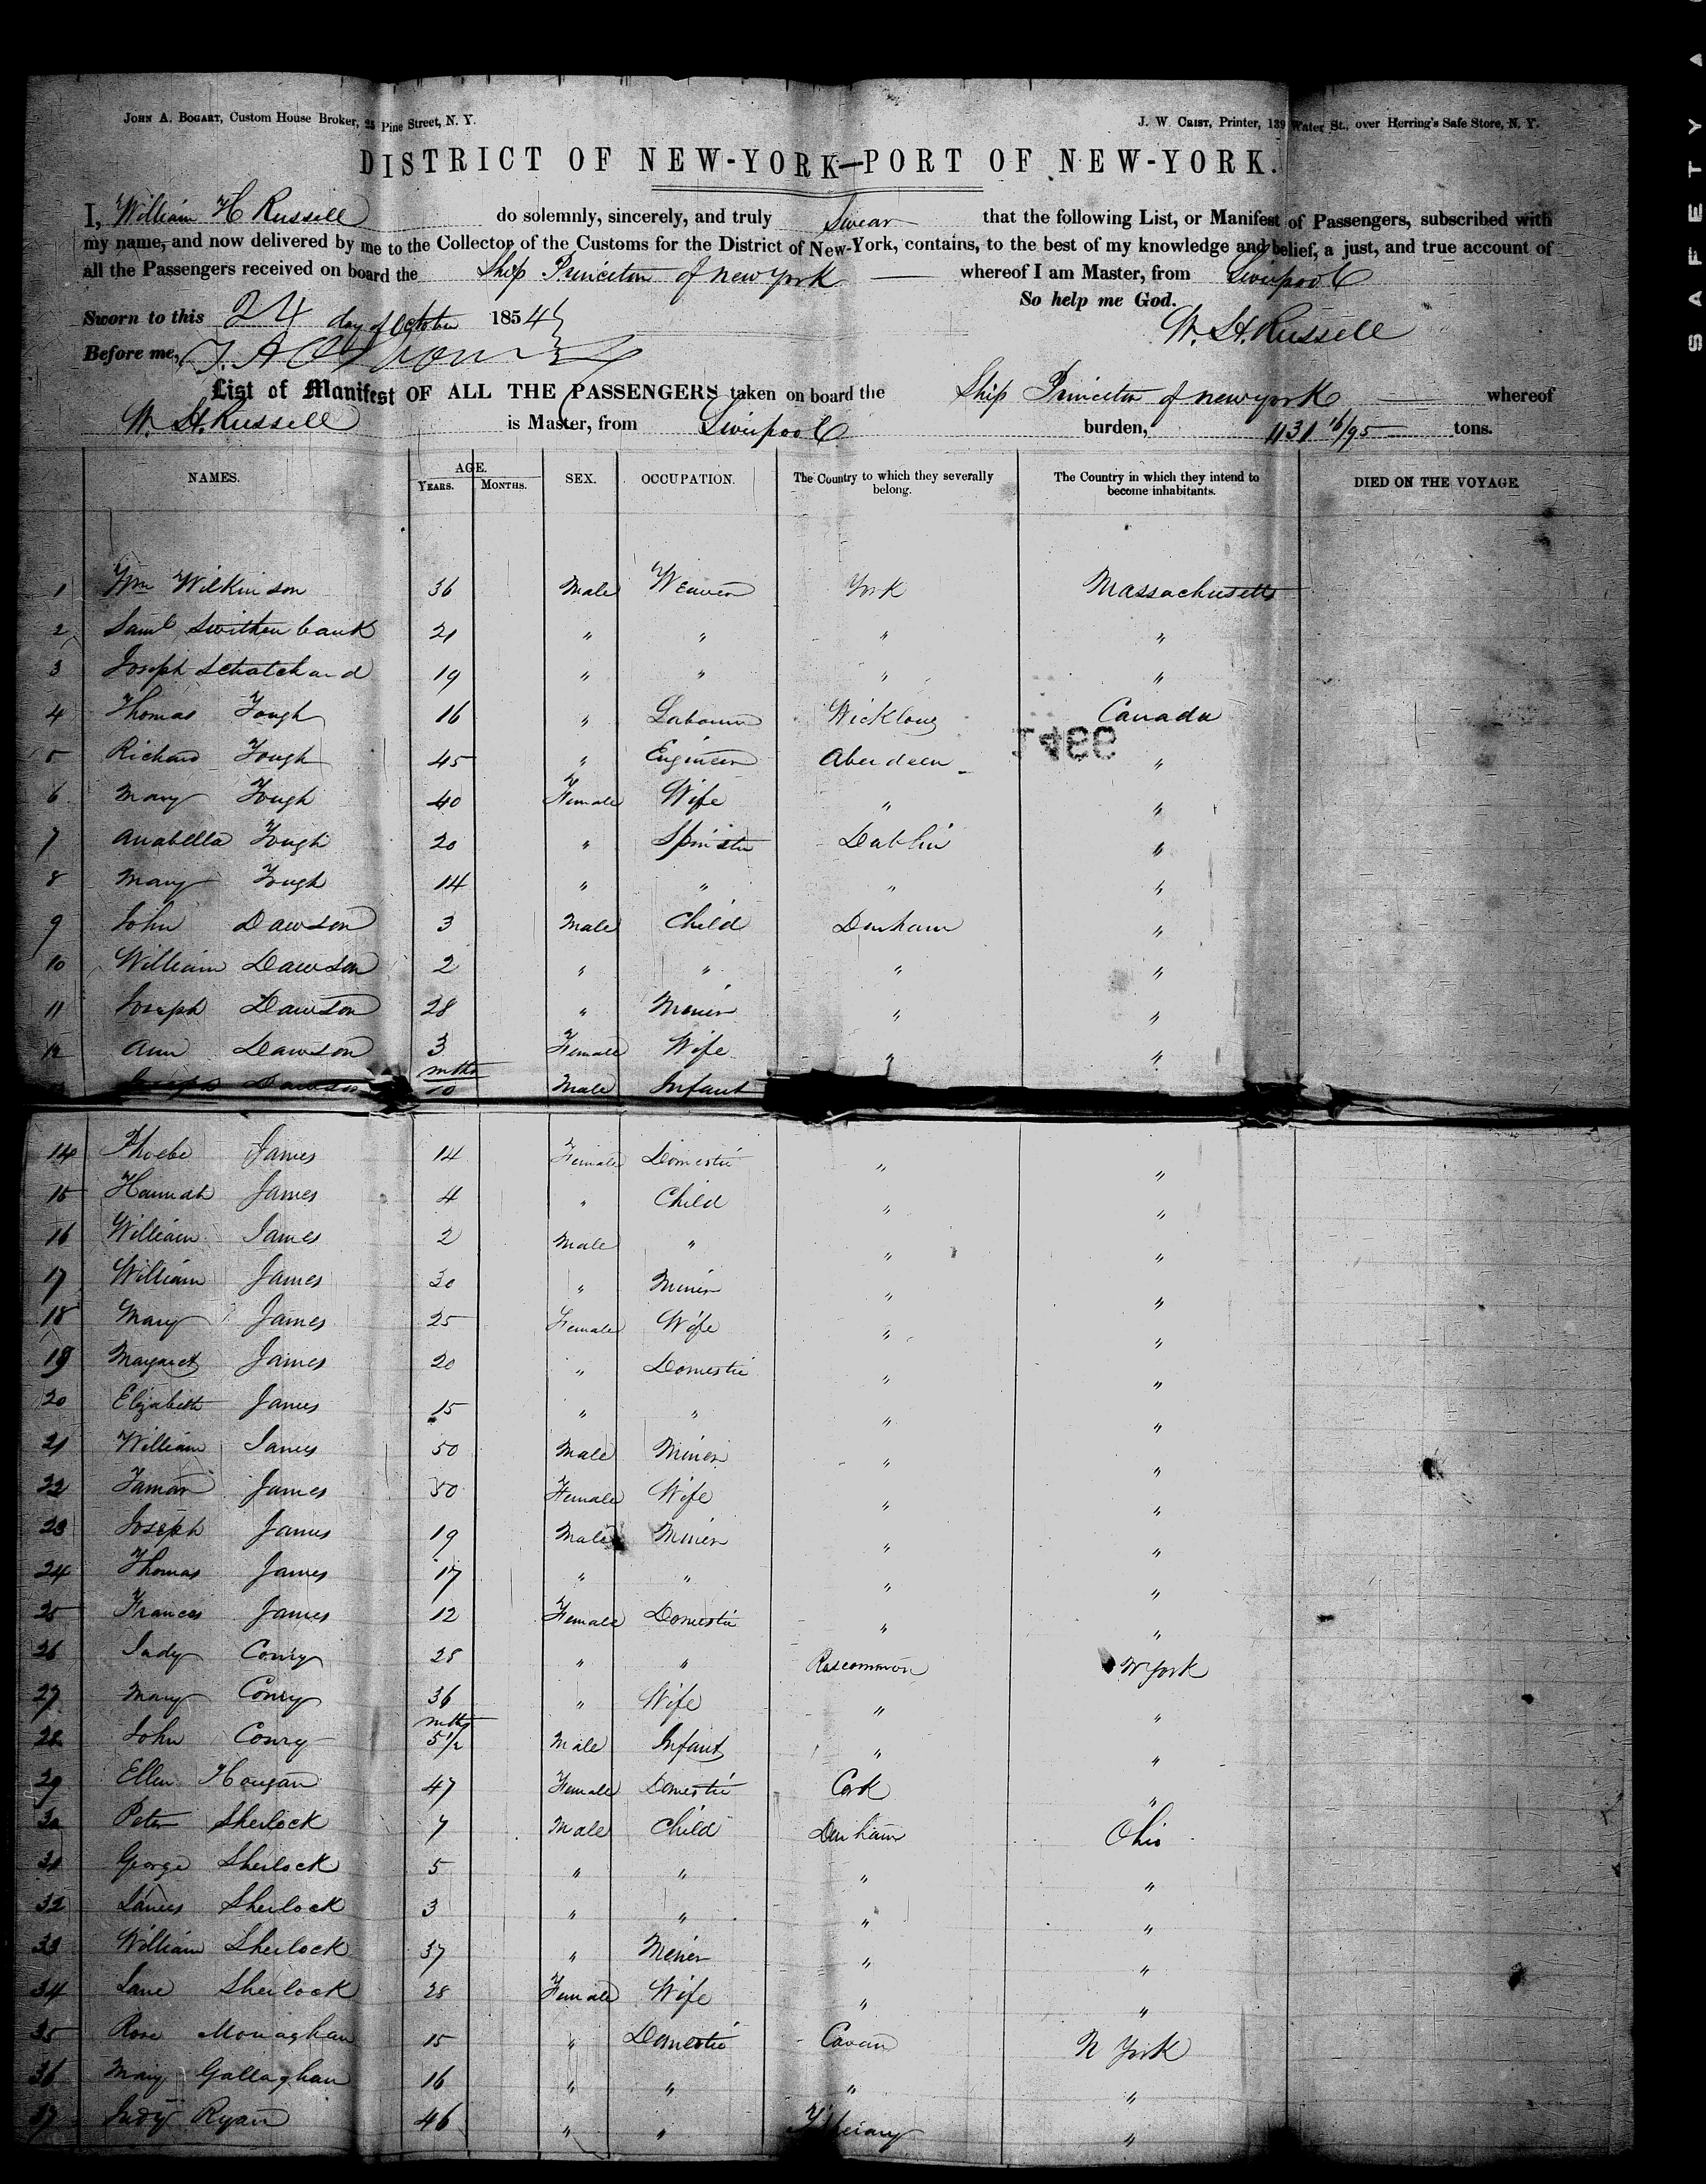 SAFETY
JOHN A. BOGART, Custom House Broker, 25 Pine Street, N. Y.
J. W. CRIST, Printer, 139 Water St., over Herring's Safe Store, N. Y.
DISTRICT OF NEW-YORK—PORT OF NEW-YORK.
I, William H Russell do solemnly, sincerely, and truly Swear that the following List, or Manifest of Passengers, subscribed with
my name, and now delivered by me to the Collector of the Customs for the District of New-York, contains, to the best of my knowledge and belief, a just, and true account of
all the Passengers received on board the Ship Princeton of new york whereof I am Master, from Liverpool
So help me God.
Sworn to this 24 day of October 1854
W. H. Russell
Before me,
List of Manifest OF ALL THE PASSENGERS taken on board the Ship Princeton of new york whereof
W. H. Russell is Master, from Liverpool burden, 1131 16/95 tons.
NAMES. AGE. YEARS. MONTHS. SEX. OCCUPATION. The Country to which they severally belong. The Country in which they intend to become inhabitants. DIED ON THE VOYAGE
1 Wm Wilkinson 36 Male Weaver York Massachusetts
2 Saml Swithenbank 21 " " " "
3 Joseph 19 " " " "
4 Thomas Tough 16 " Labourer Wicklow Canada
5 Richard Tough 45 " Engineer Aberdeen "
6 Mary Tough 40 Female Wife " "
7 Anabella Tough 20 " Spinster Dublin "
8 Mary Tough 14 " " " "
9 John Dawson 3 Male Child Durham "
10 William Dawson 2 " " " "
11 Joseph Dawson 28 " Miner " "
12 Ann Dawson 3 Female Wife " "
Joseph Dawson mths 10 Male Infant
14 Phoebe James 14 Female Domestic " "
15 Hannah James 4 " Child " "
16 William James 2 Male " " "
17 William James 30 " Miner " "
18 Mary James 25 Female Wife " "
19 Margaret James 20 " Domestic " "
20 Elizabeth James 15 " " " "
21 William James 50 Male Miner " "
22 Tamar James 50 Female Wife " "
23 Joseph James 19 Male Miner " "
24 Thomas James 17 " " " "
25 Frances James 12 Female Domestic " "
26 Judy Conry 28 " " Roscommon N York
27 Mary Conry 36 " Wife " "
28 John Conry mths 5½ Male Infant " "
29 Ellen Hougan 47 Female Domestic Cork "
30 Peter Sherlock 7 Male Child Durham Ohio
31 George Sherlock 5 " " " "
32 James Sherlock 3 " " " "
33 William Sherlock 37 " Miner " "
34 Jane Sherlock 28 Female Wife " "
35 Rose Monaghan 15 " Domestic Cavan N York
36 Mary Gallaghan 16 " " " "
37 Judy Ryan 46 " " Tiperary "